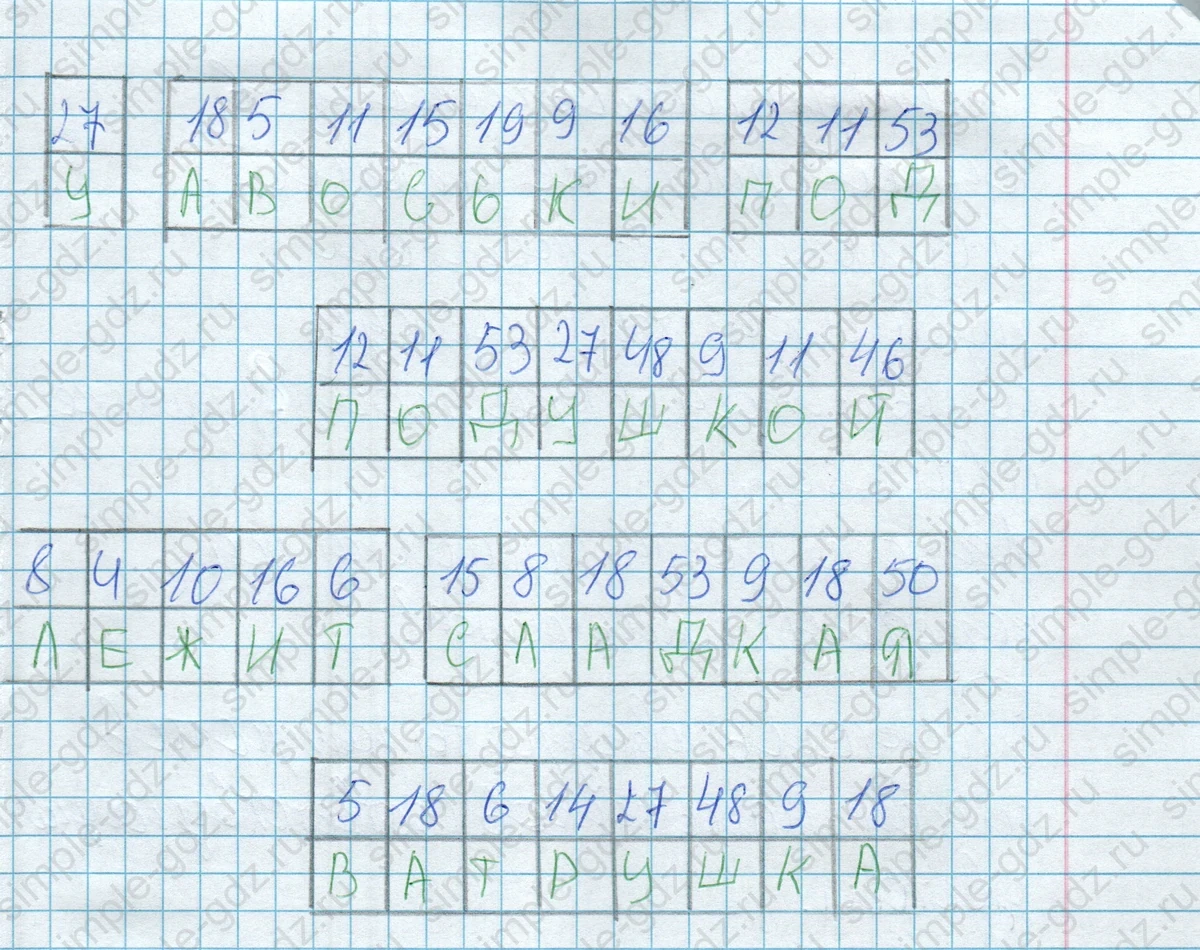 27 18 5 11 15 19 9 16 12 11 53
У А В О С Ь К И П О Д
12 11 53 27 48 9 11 46
П О Д У Ш К О Й
8 4 10 16 6 15 8 18 53 9 18 50
Л Е Ж И Т С Л А Д К А Я
5 18 6 14 27 48 9 18
В А Т Р У Ш К А
simple-gdz.ru